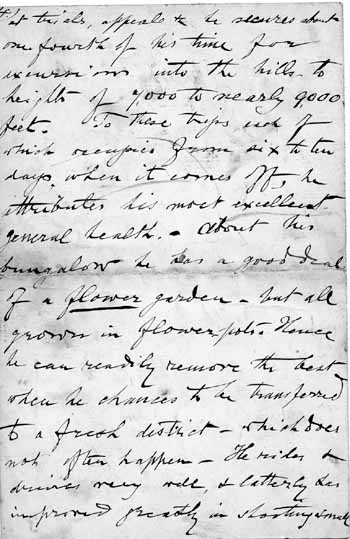 at trials, appeals &c he secures about
one fourth of his time for
excursions into the hills to
heights of 7000 to nearly 9000
feet. To these trips each of
which occupies from six to ten
days, when it comes off, he
attributes his most excellent
general health. - About his
bungalow he has a good deal
of a flower garden - but all
grown in flowerpots. Hence
he can readily remove the best
when he chances to be transferred
to a fresh district - which does
not often happen - He rides &
drives very well, & latterly has
improved greatly in shooting small